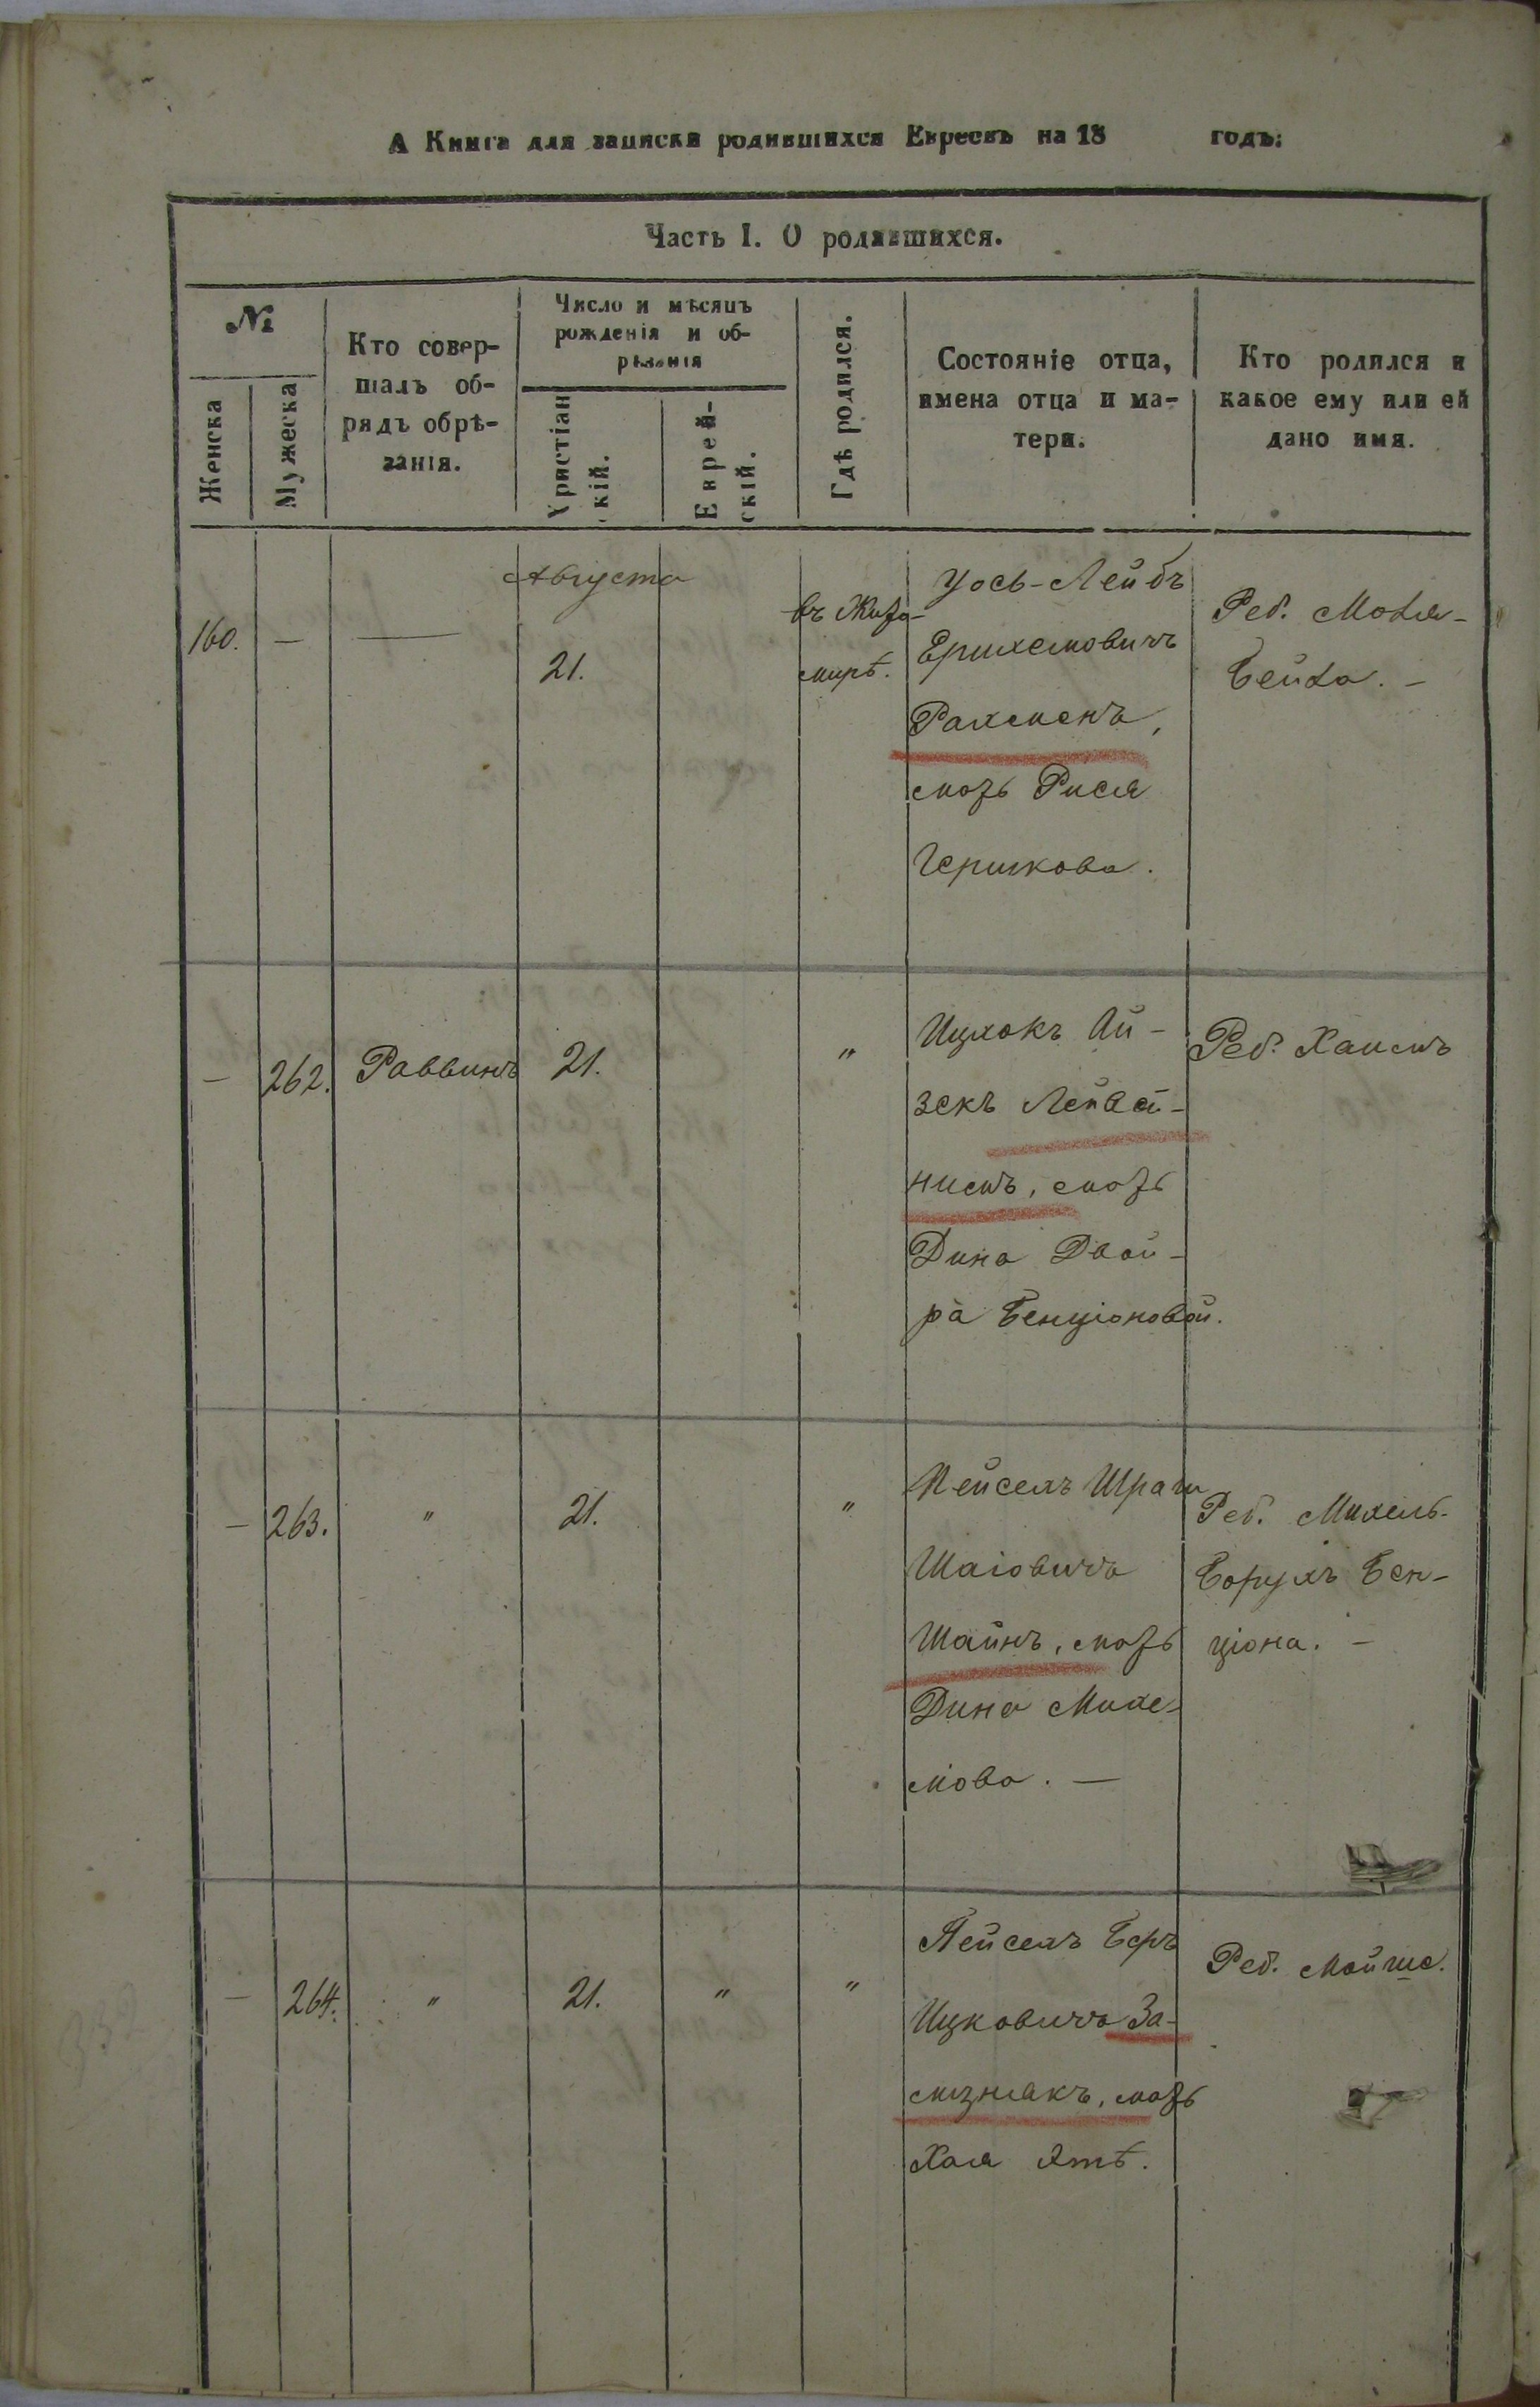 А Книга для записки родившихся Евреевъ на 18 годъ:
Часть I. О родившихся.
№
Женска
Мужеска
Кто совер-
шалъ об-
рядъ обрѣ-
занія.
Число и мѣсяцъ
рожденія и об-
рѣзанія
Христіан
скій.
Еврей-
скій.
Гдѣ родился.
Состояніе отца,
имена отца и ма-
тери.
Кто родился и
какое ему или ей
дано имя.
Августа
160. — — 21.
въ Жито-
мирѣ.
Усь-Лейбъ
Рахменъ,
мать Рися
Гершкова.
Реб. Мотя-
Бейла. —
— 262. Раввинъ 21. "
Ицхокъ Ай-
зекъ Лейвай-
нисъ, мать
Дина Двой-
ра Бенціоновой.
Реб. Хаимъ
— 263. " 21. "
Пейсахъ Шрага
Шаіовичъ
Шайнъ, мать
Дина Михе-
лова. —
Реб. Михель-
Борухъ Бен-
ціона. —
— 264. " 21. " "
Пейсахъ Беръ
Ицковичъ За-
мать
Хая Ятѣ.
Реб. Мойше.